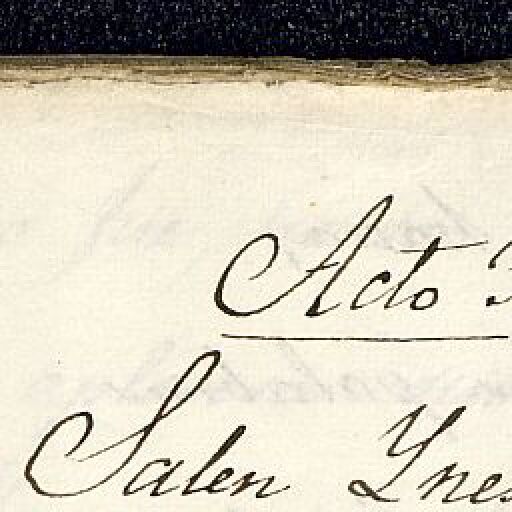 Acto
Salen Ynes